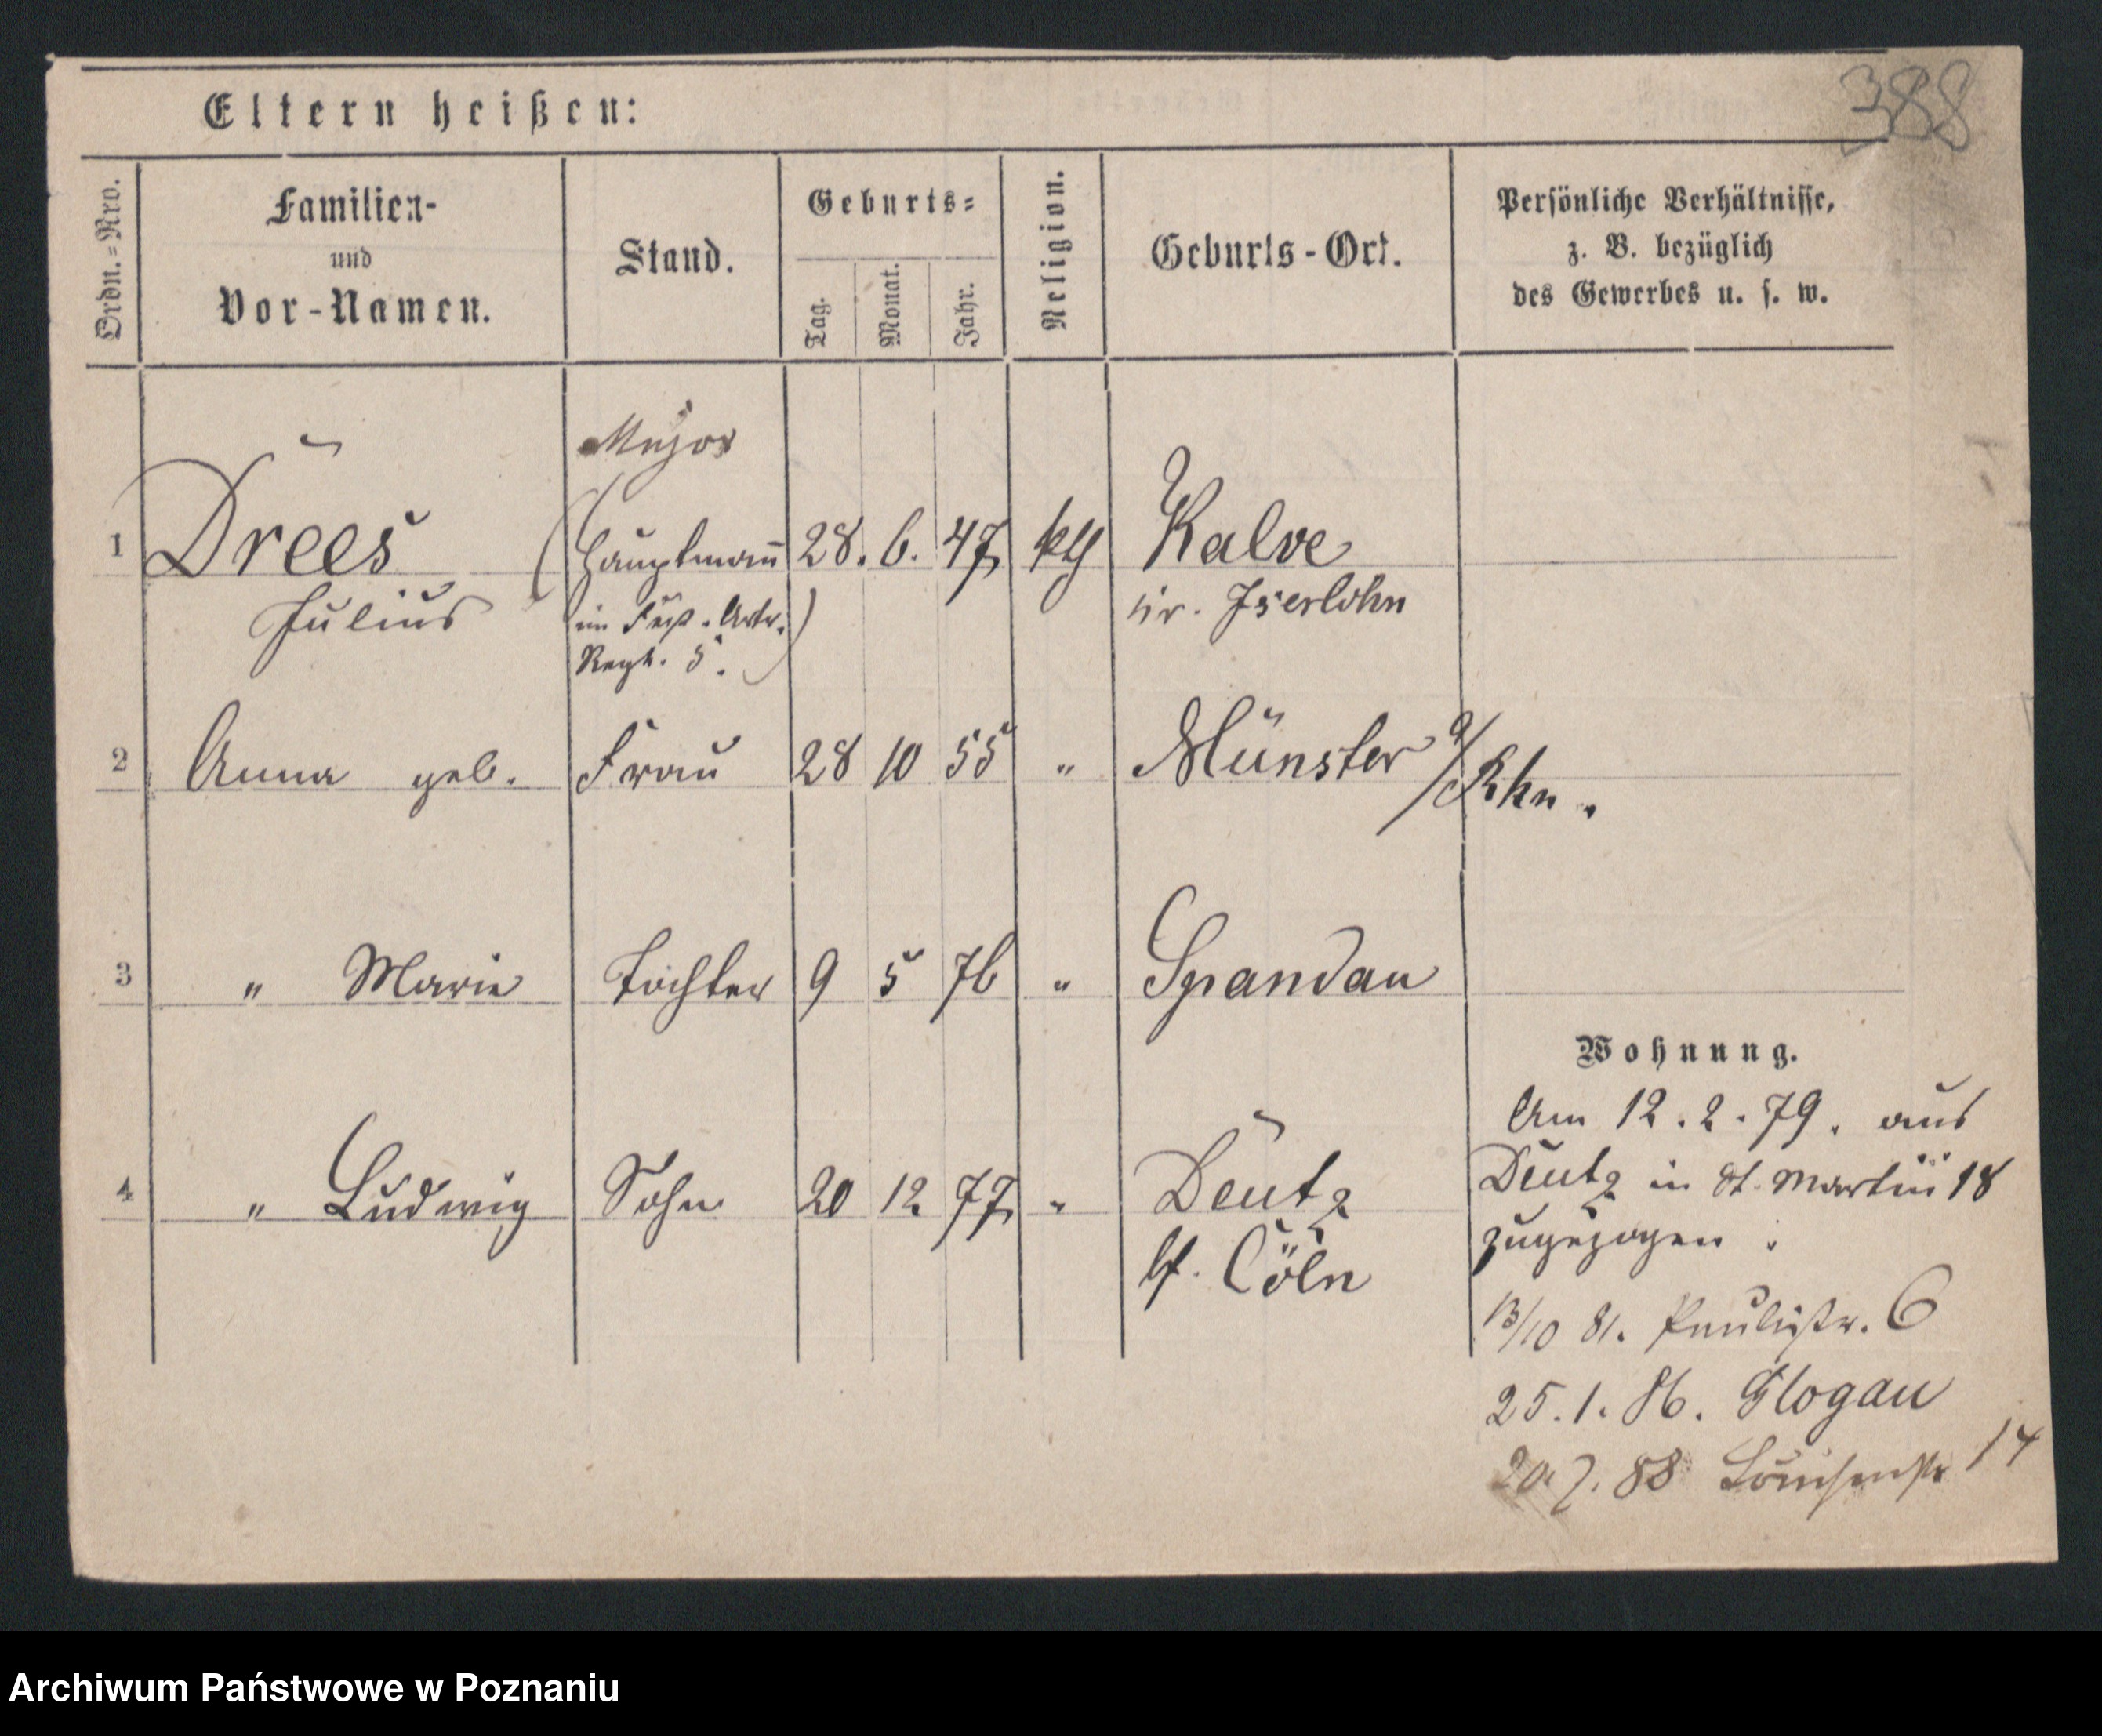 388
Eltern heißen:
Ordn.=Nro.
Familien-
und
Vor-Namen.
Stand.
Geburts=
Tag.
Monat.
Jahr.
Religion.
Geburts-Ort.
Persönliche Verhältnisse,
z. B. bezüglich
des Gewerbes u. s. w.
Major
1 Drees (Hauptmann 28. 6. 47 kth Kalve
Julius im Fuß. Artr. Kr. Iserlohn
Regt. 5.)
2 Anna geb. Frau 28 10 55 " Münster a/Rhn.
3 " Marie Tochter 9 5 76 " Spandau
Wohnung.
Am 12.2.79. aus
4 " Ludwig Sohn 20 12 77 " Deutz
Deutz in St. Martin 18
bf. Cöln
zugezogen.
13/10 81. Paulistr. 6
25.1.86. Glogau
20.7.88 Louisenstr 14
Archiwum Państwowe w Poznaniu